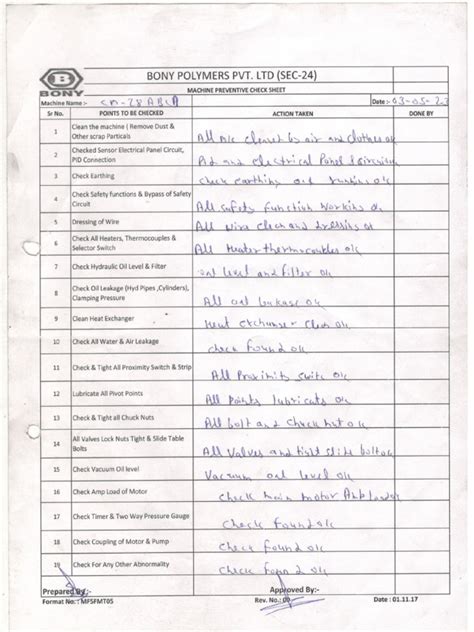 BONY POLYMERS PVT. LTD (SEC-24)
BONY
MACHINE PREVENTIVE CHECK SHEET
Machine Name :- Date :- 03-05-23
Sr No. POINTS TO BE CHECKED ACTION TAKEN DONE BY
1 Clean the machine ( Remove Dust & Other scrap Particals All M/c cleaned by air and clothes ok
2 Checked Sensor Electrical Panel Circuit, PID Connection and electrical Panel & circuit
3 Check Earthing check earthing and ok
4 Check Safety Functions & Bypass of Safety Circuit All Safety Function working ok
5 Dressing of Wire All wire clean and dressing ok
6 Check All Heaters, Thermocouples & Selector Switch All Heater thermocouples ok
7 Check Hydraulic Oil Level & Filter oil level and filter ok
8 Check Oil Leakage (Hyd Pipes ,Cylinders), Clamping Pressure All oil leakage ok
9 Clean Heat Exchanger Heat exchanger clean ok
10 Check All Water & Air Leakage check found ok
11 Check & Tight all Proximity Switch & Strip All Proximity switc ok
12 Lubricate All Pivot Points All Points lubricats ok
13 Check & Tight all Chuck Nuts All bolt and check nut ok
14 All Valves Lock Nuts Tight & Slide Table Bolts All valves and tight slide bolt ok
15 Check Vacuum Oil level Vacuum oil level ok
16 Check Amp Load of Motor Check main motor Amp load ok
17 Check Timer & Two Way Pressure Gauge Check found ok
18 Check Coupling of Motor & Pump Check found ok
19 Check For Any Other Abnormality Check found ok
Prepared By:- Approved By:-
Format No. : MFSFMT05 Rev. No.: 00 Date : 01.11.17